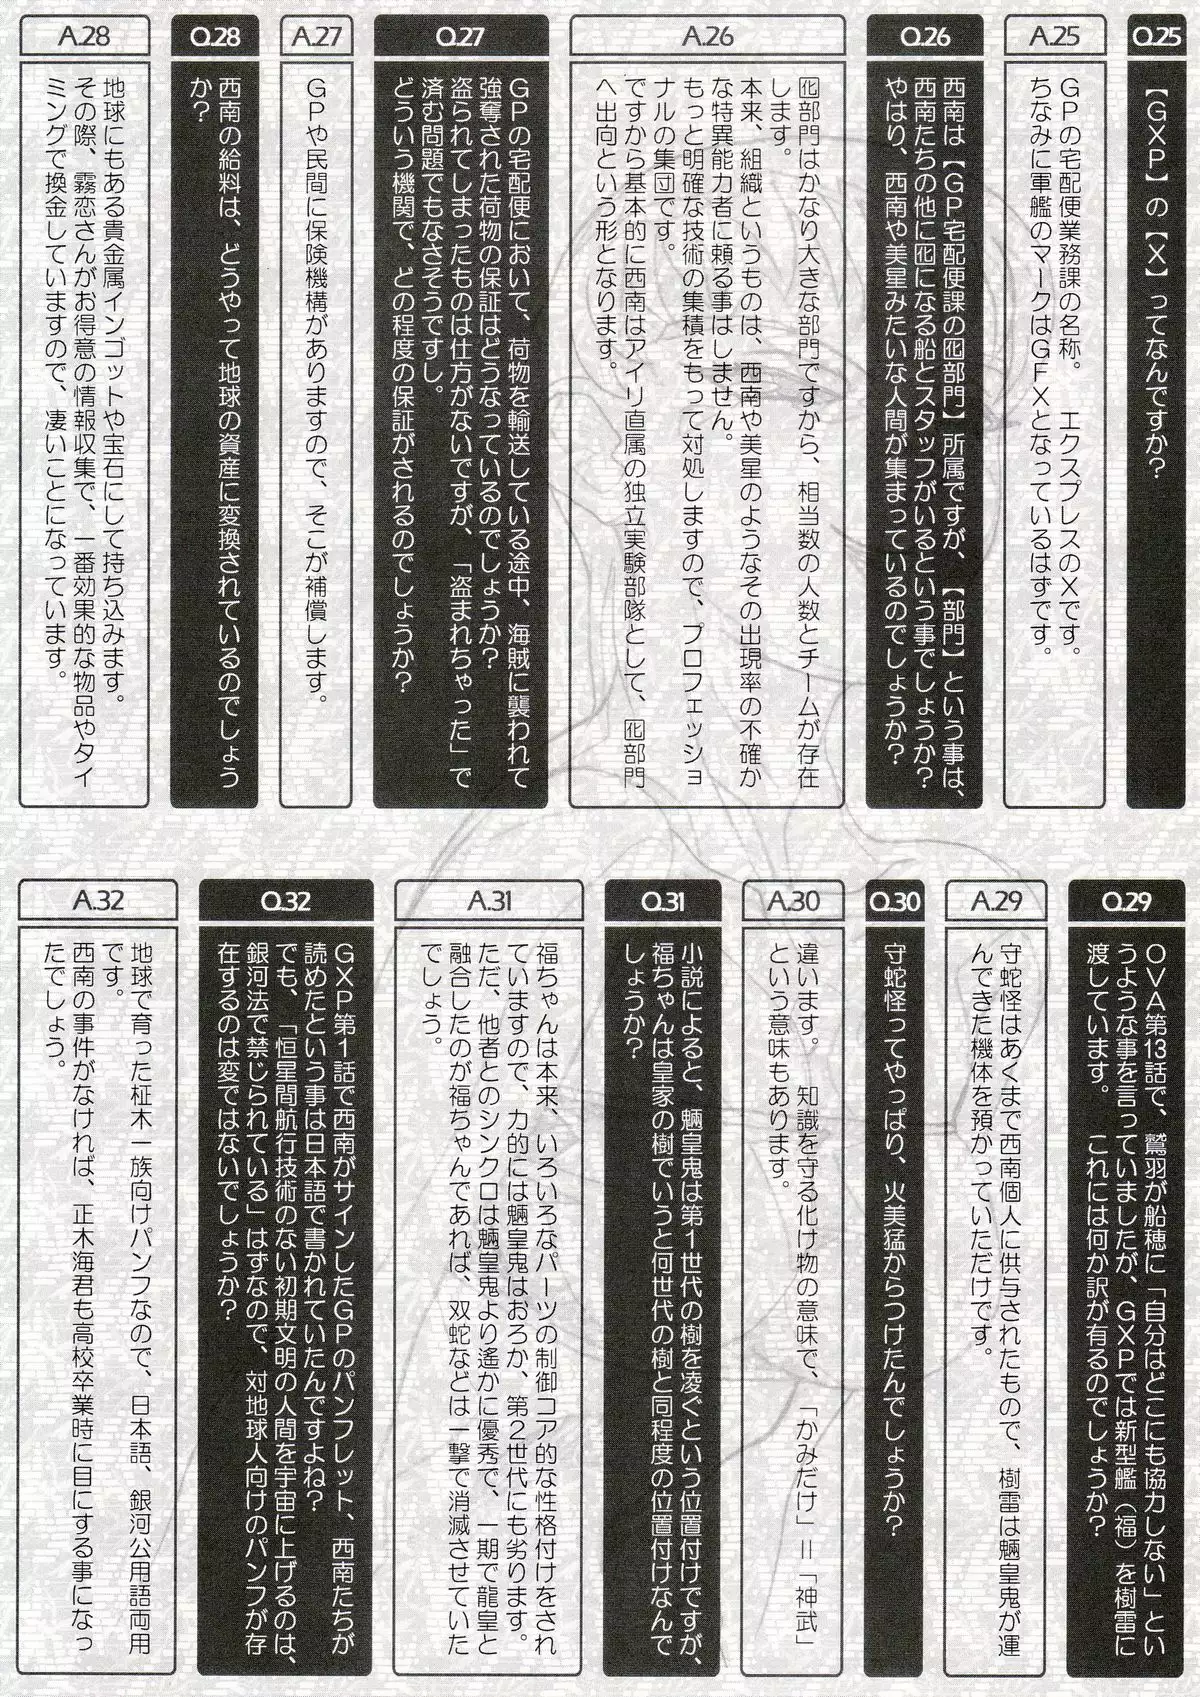 Q.25
【GXP】の【X】ってなんですか?
A.25
GPの宅配便業務課の名称。　エクスプレスのXです。
ちなみに軍艦のマークはGFXとなっているはずです。
Q.26
西南は【GP宅配便課の囮部門】所属ですが、【部門】という事は、
西南たちの他に囮になる船とスタッフがいるという事でしょうか?
やはり、西南や美星みたいな人間が集まっているのでしょうか?
A.26
囮部門はかなり大きな部門ですから、相当数の人数とチームが存在
します。
本来、組織というものは、西南や美星のようなその出現率の不確か
な特異能力者に頼る事はしません。
もっと明確な技術の集積をもって対処しますので、プロフェッショ
ナルの集団です。
ですから基本的に西南はアイリ直属の独立実験部隊として、囮部門
へ出向という形となります。
Q.27
GPの宅配便において、荷物を輸送している途中、海賊に襲われて
強奪された荷物の保証はどうなっているのでしょうか?
盗られてしまったものは仕方がないですが、「盗まれちゃった」で
済む問題でもなさそうですし。
どういう機関で、どの程度の保証がされるのでしょうか?
A.27
GPや民間に保険機構がありますので、そこが補償します。
Q.28
西南の給料は、どうやって地球の資産に変換されているのでしょう
か?
A.28
地球にもある貴金属インゴットや宝石にして持ち込みます。
その際、霧恋さんがお得意の情報収集で、一番効果的な物品やタイ
ミングで換金していますので、凄いことになっています。
Q.29
OVA第13話で、鷲羽が船穂に「自分はどこにも協力しない」とい
うような事を言っていましたが、GXPでは新型艦(福)を樹雷に
渡しています。　これには何か訳が有るのでしょうか?
A.29
守蛇怪はあくまで西南個人に供与されたもので、樹雷は魎皇鬼が運
んできた機体を預かっていただけです。
Q.30
守蛇怪ってやっぱり、火美猛からつけたんでしょうか?
A.30
違います。　知識を守る化け物の意味で、「かみだけ」=「神武」
という意味もあります。
Q.31
小説によると、魎皇鬼は第1世代の樹を凌ぐという位置付けですが、
福ちゃんは皇家の樹でいうと何世代の樹と同程度の位置付けなんで
しょうか?
A.31
福ちゃんは本来、いろいろなパーツの制御コア的な性格付けをされ
ていますので、力的には魎皇鬼はおろか、第2世代にも劣ります。
ただ、他者とのシンクロは魎皇鬼より遙かに優秀で、一期で龍皇と
融合したのが福ちゃんであれば、双蛇などは一撃で消滅させていた
でしょう。
Q.32
GXP第1話で西南がサインしたGPのパンフレット、西南たちが
読めたという事は日本語で書かれていたんですよね?
でも、「恒星間航行技術のない初期文明の人間を宇宙に上げるのは、
銀河法で禁じられている」はずなので、対地球人向けのパンフが存
在するのは変ではないでしょうか?
A.32
地球で育った柾木一族向けパンフなので、日本語、銀河公用語両用
です。
西南の事件がなければ、正木海君も高校卒業時に目にする事になっ
たでしょう。